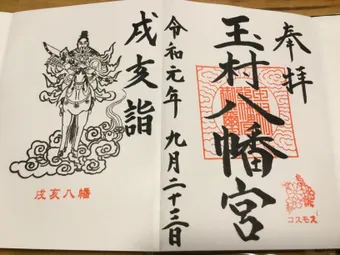 奉拝
玉村八幡宮
コスモス
令和元年 九月二十三日
戌亥詣
戌亥八幡